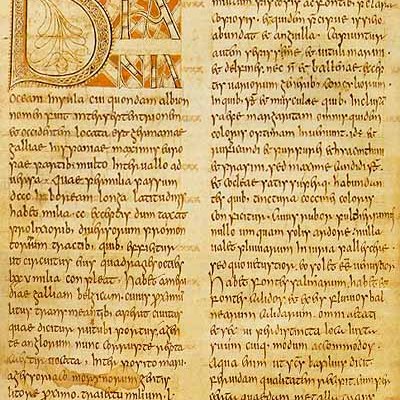 B
TA
NIA
Oceani insula cui quondam albion
nomen fuit inter septentrionem
et occidentem locata est germaniae
galliae hispaniae maximis euro
pae partib; multo interuallo ad
uersa. Quae per milia passuum
dccc in boream longa latitudinis
habet milia cc exceptis dum taxat
prolixiorib; diuersorum promon
toriorum tractib; quib; efficitur
ut circuitus eius quadragies octies
lxxv milia compleat. Habet a meri
die galliam belgicam cuius proxi
litus transmeantib; aperit ciuitas
quae dicitur rutubi portus a gen
te anglorum nunc corrupte repta
caestir uocata, interposito mari
a gessoriaco morinorum gentis
litore proximo
et
abundat et anguilla. Capiuntur
autem saepissime et uituli marini
et delphines nec non et balenae excep
tis uariorum generib; concyliorum
in quib; sunt et musculae quib; inclusam
saepe margaritam omnis quidem
coloris optimam inueniunt id est
et rubicundi et purpurei et hyacinthini
et prasini sed maxime candidi. Sunt
et cocleae satis superque habundan
tes quib; tinctura coccinei coloris
conficitur. Cuius rubor pulcherrimus
nullo umquam solis ardore nulla
ualet pluuiarum iniuria pallescere
sed quo uetustior eo solet esse uenustior
Habet fontes salinarum habet et
fontes calidos et ex eis fluuios bal
nearum calidarum omni aetati
et sexui per distincta loca iuxta
suum cuiq; modum accommodos.
Aqua enim ut scs basilius dicit
feruidam qualitatem recipit
quaedam metalla